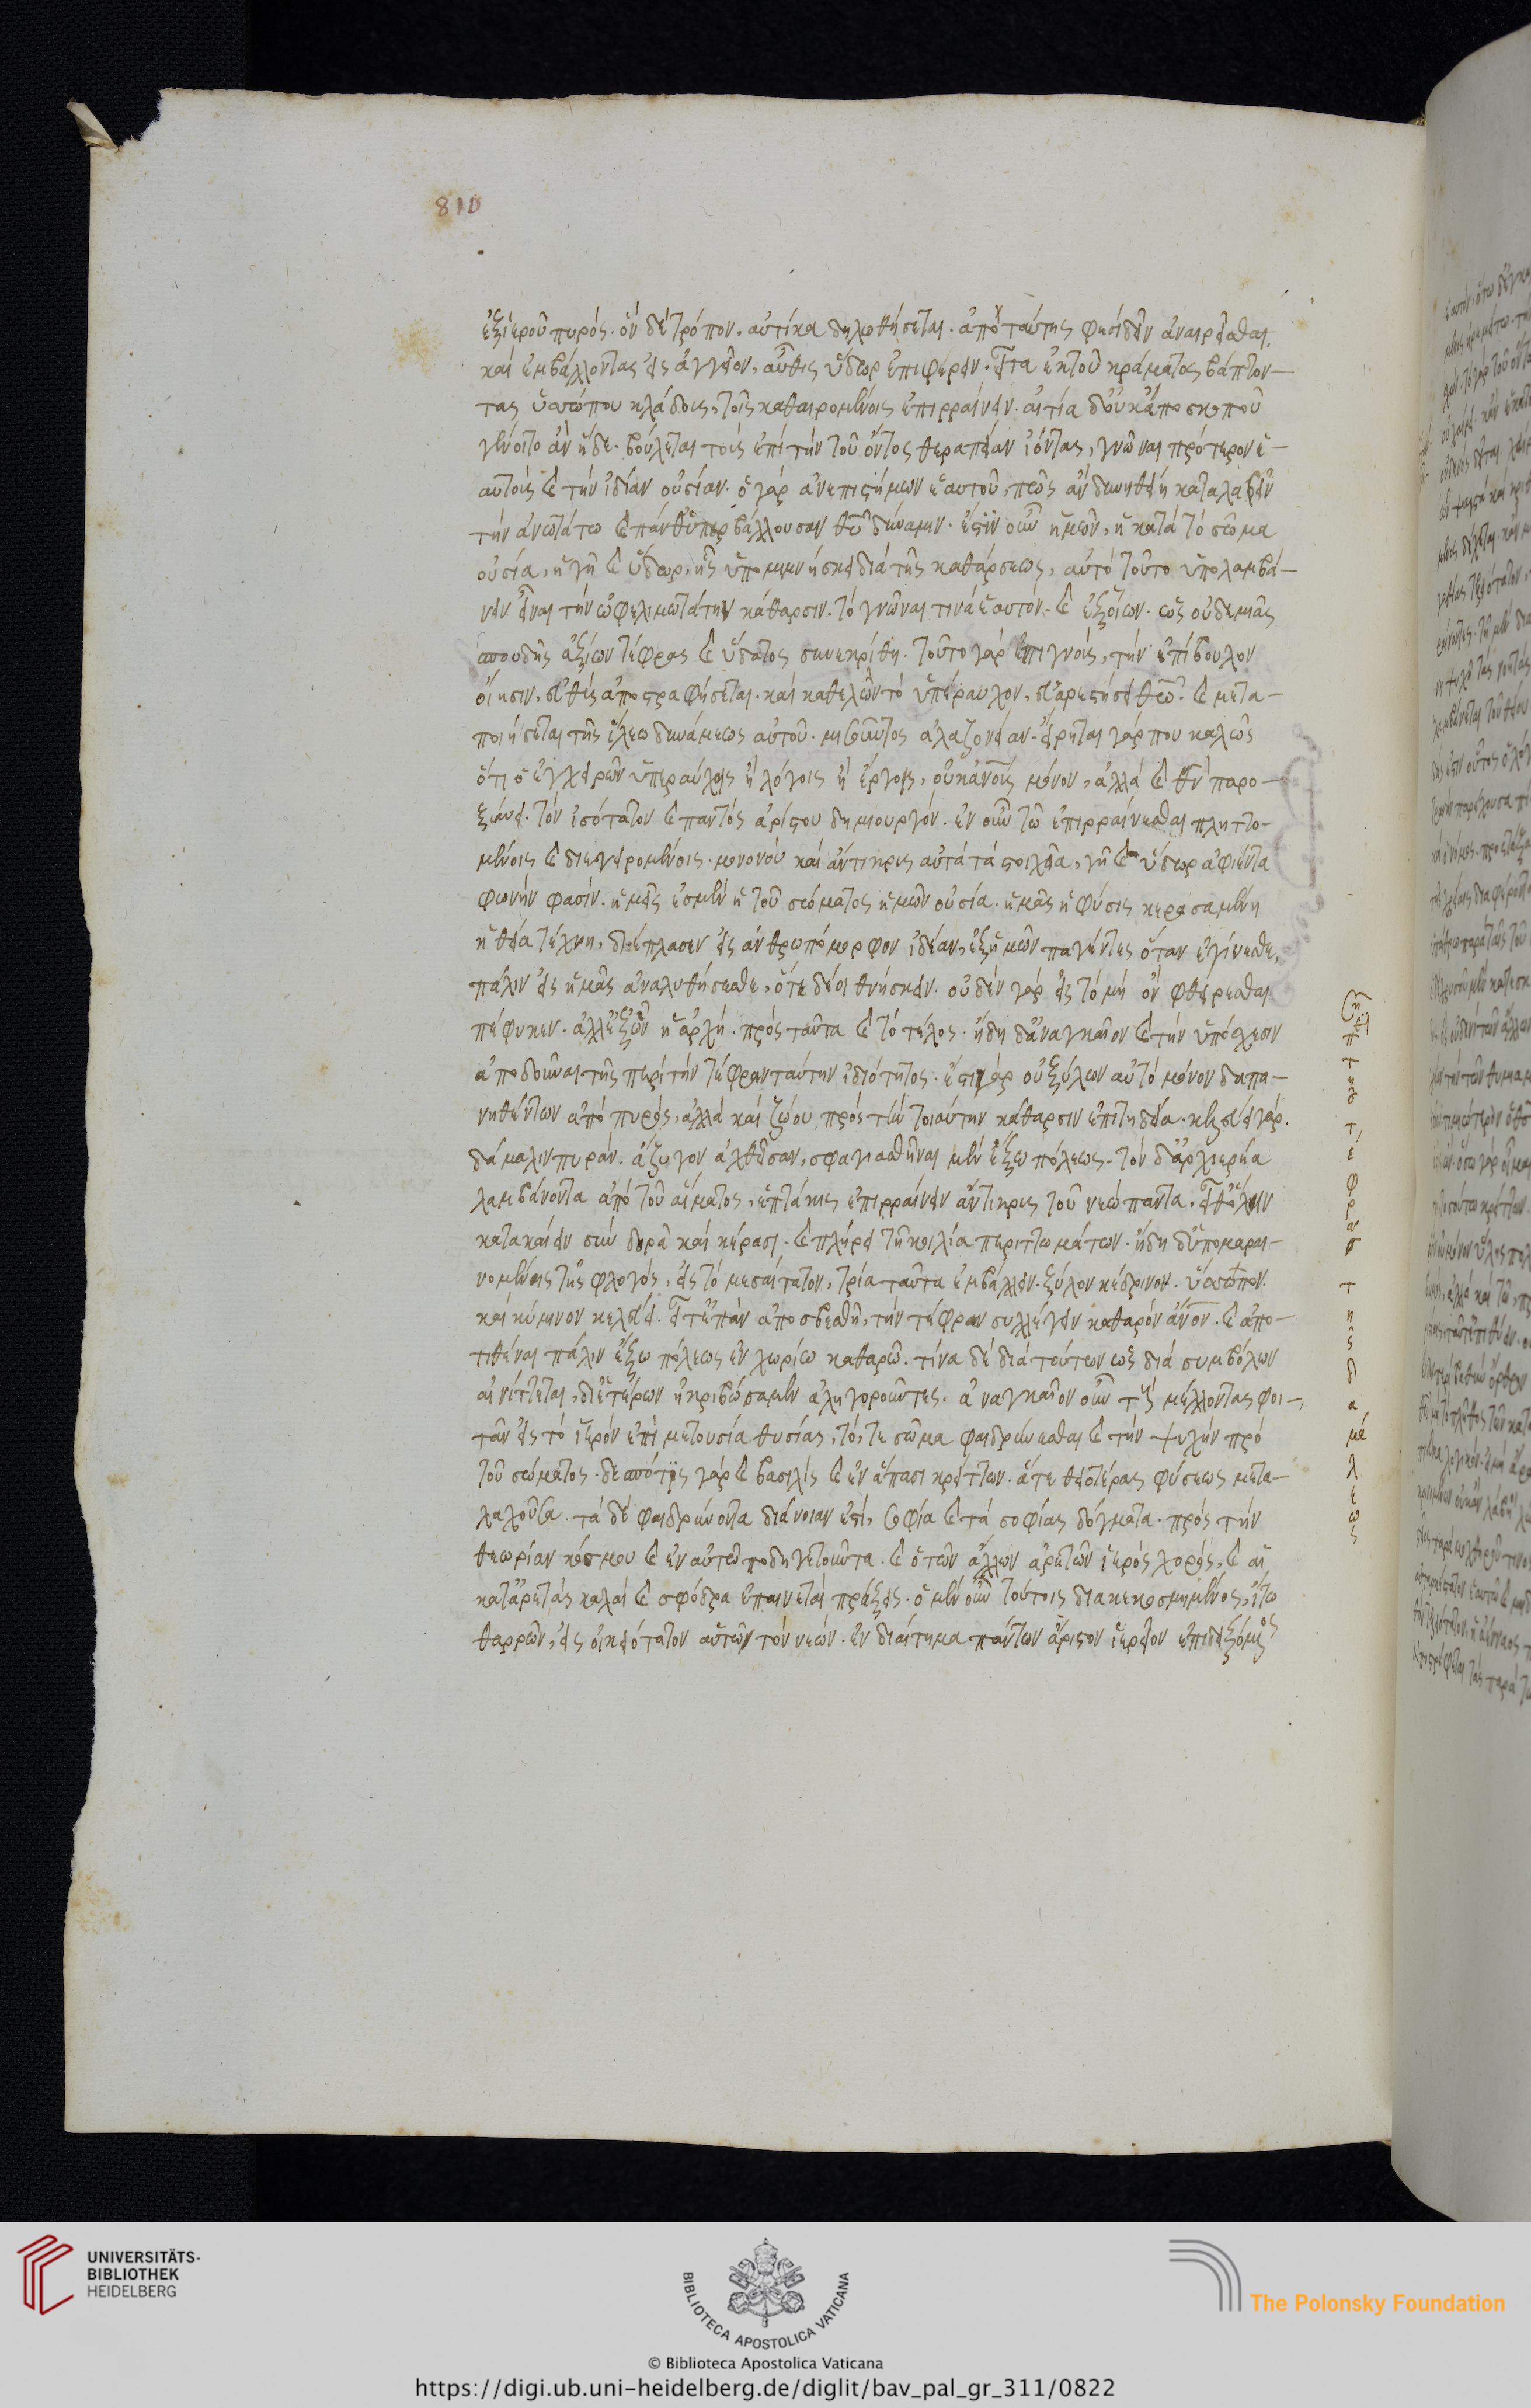 810
ἐξ ἱεροῦ πυρός· ὃν δὲ τρόπον, αὐτίκα δηλωθήσεται. ἀπὸ ταύτης φησὶ δεῖν ἀναιρεῖσθαι,
καὶ ἐμβάλλοντας εἰς ἀγγεῖον, αὖθις ὕδωρ ἐπιφέρειν. εἶτα ἐκ τοῦ κράματος βάπτον-
τας ὑσσώπου κλάδοις, τοῖς καθαιρομένοις ἐπιρραίνειν. αἰτία δ' οὐκ ἀπὸ σκοποῦ
γένοιτο ἂν ἥδε. βούλεται τοὺς ἐπὶ τὴν τοῦ ὄντος θεραπείαν ἰόντας, γνῶναι πρότερον ἑ-
αυτοὺς καὶ τὴν ἰδίαν οὐσίαν. ὁ γὰρ ἀνεπιστήμων ἑαυτοῦ, πῶς ἂν δυνηθείη καταλαβεῖν
τὴν ἀνωτάτω καὶ πάνθ' ὑπερβάλλουσαν θεοῦ δύναμιν. ἔστιν οὖν ἡμῶν, ἡ κατὰ τὸ σῶμα
οὐσία, ἡ γῆ καὶ ὕδωρ, ἧς ὑπομιμνήσκει διὰ τῆς καθάρσεως, αὐτὸ τοῦτο ὑπολαμβά-
νειν εἶναι τὴν ὠφελιμωτάτην κάθαρσιν. τὸ γνῶναί τινα ἑαυτόν. καὶ ἐξ οἵων, ὡς οὐδεμιᾶς
σπουδῆς ἀξίων τέφρας καὶ ὕδατος συνεκρίθη. τοῦτο γὰρ ἐπιγνούς, τὴν ἐπίβουλον
οἴησιν, εὐθὺς ἀποστραφήσεται. καὶ καθελὼν τὸ ὑπέραυχον, εὐαρεστήσει θεῶ. καὶ μετα-
ποιήσεται τῆς ἵλεω δυνάμεως αὐτοῦ. μισοῦντος ἀλαζονείαν. εἴρηται γάρ που καλῶς
ὅτι ὁ ἐγχειρῶν ὑπεραύχοις ἢ λόγοις ἢ ἔργοις, οὐκ ἀνοὺς μόνον, ἀλλὰ καὶ θεὸν παρο-
ξύνει. τὸν ἰσότητος καὶ παντὸς ἀρίστου δημιουργόν. ἐν οὖν τῶ ἐπιρραίνεσθαι πληττο-
μένοις καὶ διεγειρομένοις. μονονοὺ καὶ ἄντικρυς αὐτὰ τὰ στοιχεῖα, γῆ καὶ ὕδωρ ἀφιέντα
φωνὴν φασίν. ἡμεῖς ἐσμὲν ἡ τοῦ σώματος ἡμῶν οὐσία. ἡμᾶς ἡ φύσις κερασαμένη
ἡ θεία τέχνη, διέπλασεν εἰς ἀνθρωπόμορφον ἰδέαν, ἐξ ἡμῶν παγέντες ὅταν ἐγίνεσθε,
πάλιν εἰς ἡμᾶς ἀναλυθήσεσθε, ὅτε δέοι θνήσκειν. οὐδὲν γὰρ εἰς τὸ μὴ ὂν φθείρεσθαι
πέφυκεν. ἀλλ' ἐξ ὧν ἡ ἀρχή. πρὸς ταῦτα καὶ τὸ τέλος. ἤδη δ' ἀναγκαῖον καὶ τὴν ὑπόσχεσιν
ἀποδοῦναι τῆς περὶ τὴν τέφραν ταύτην ἰδιότητος. ἔστι γὰρ οὐ ξύλων αὐτὸ μόνον δαπα-
νηθέντων ἀπὸ πυρός, ἀλλὰ καὶ ζώου πρὸς τὴν τοιαύτην κάθαρσιν ἐπιτηδείου. κελεύει γάρ.
δάμαλιν πυρὰν. ἄζυγον ἀχθεῖσαν, σφαγιασθῆναι μὲν ἔξω πόλεως. τὸν δ' ἀρχιερέα
λαμβάνοντα ἀπὸ τοῦ αἵματος, ἑπτάκις ἐπιρραίνειν ἄντικρυς τοῦ νεὼ πάντα, εἶθ' ὅλην
κατακαίειν σὺν δορᾶ καὶ κέρασι. καὶ πλήρει τῆ κοιλία περιττωμάτων. ἤδη δ' ὑπομαραι-
νομένης τῆς φλογός, εἰς τὸ μεσαίτατον, τρία ταῦτα ἐμβάλλειν. ξύλον κέδρινον. ὕσσωπον.
καὶ κύμινον κελεύει. εἶτ' ἐπὰν ἀποσβεσθῆ, τὴν τέφραν συλλέγειν καθαρὸν ἄνον. καὶ ἀπο-
τιθέναι πάλιν ἔξω πόλεως ἐν χωρίω καθαρῶ. τίνα δὲ διὰ τούτων ὡς διὰ συμβόλων
αἰνίττεται, δι' ἑτέρων ἠκριβώσαμεν ἀληγοροῦντες. ἀναγκαῖον οὖν τοὺς μέλλοντας φοι-
τᾶν εἰς τὸ ἱερὸν ἐπὶ μετουσία θυσίας, τό, τε σῶμα φαιδρύνεσθαι καὶ τὴν ψυχὴν πρὸ
τοῦ σώματος. δεσπότις γὰρ καὶ βασιλὶς καὶ ἐν ἅπασι κρείττων. ἅτε θειοτέρας φύσεως μετα-
λαχοῦσα. τὰ δὲ φαιδρύνοντα διάνοιαν ἐστὶ, σοφία καὶ τὰ σοφίας δόγματα. πρὸς τὴν
θεωρίαν κόσμου καὶ ἐν αὐτῶ ποδηγετοῦντα. καὶ ὁ τῶν ἄλλων ἀρετῶν ἱερὸς χορός, καὶ αἱ
κατ' ἀρετὰς καλαὶ καὶ σφόδρα ἐπαινεταὶ πράξεις. ὁ μὲν οὖν τούτοις διακεκοσμημένος, ἴτω
θαρρῶν, εἰς οἰκειότατον αὐτῶν τὸν νεών. ἐν διαίτημα πάντων ἄριστον ἱερεῖον ἐπιδειξόμενος
τέφρασ τῆς δαμάλεως
UNIVERSITÄTS-
BIBLIOTHEK
HEIDELBERG
BIBLIOTECA APOSTOLICA VATICANA
The Polonsky Foundation
© Biblioteca Apostolica Vaticana
https://digi.ub.uni-heidelberg.de/diglit/bav_pal_gr_311/0822